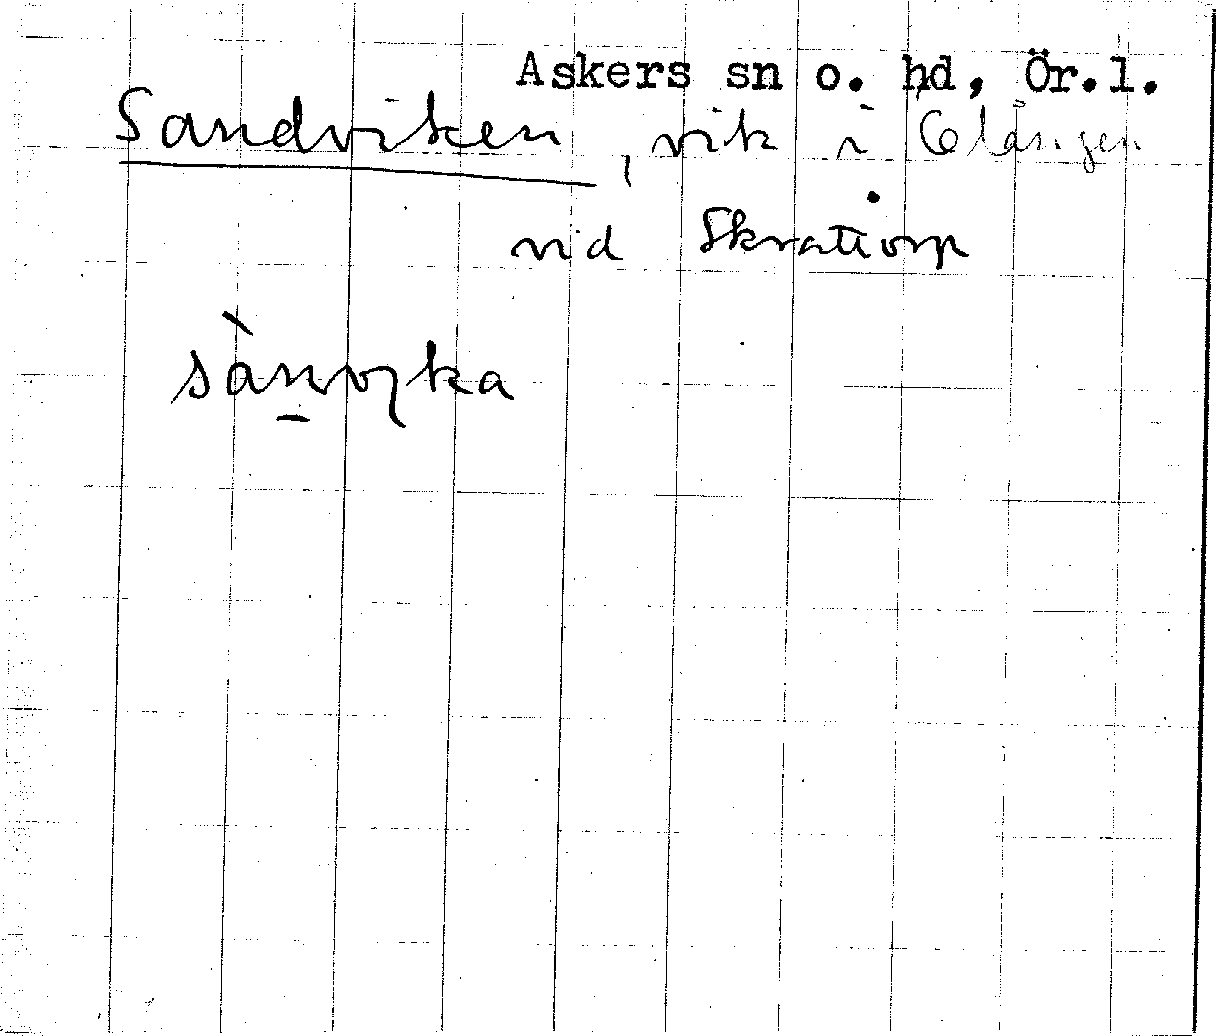 Askers sn o. hd, Ör.l.
Sandviken, vik i
vid Skrattorp
sànvika